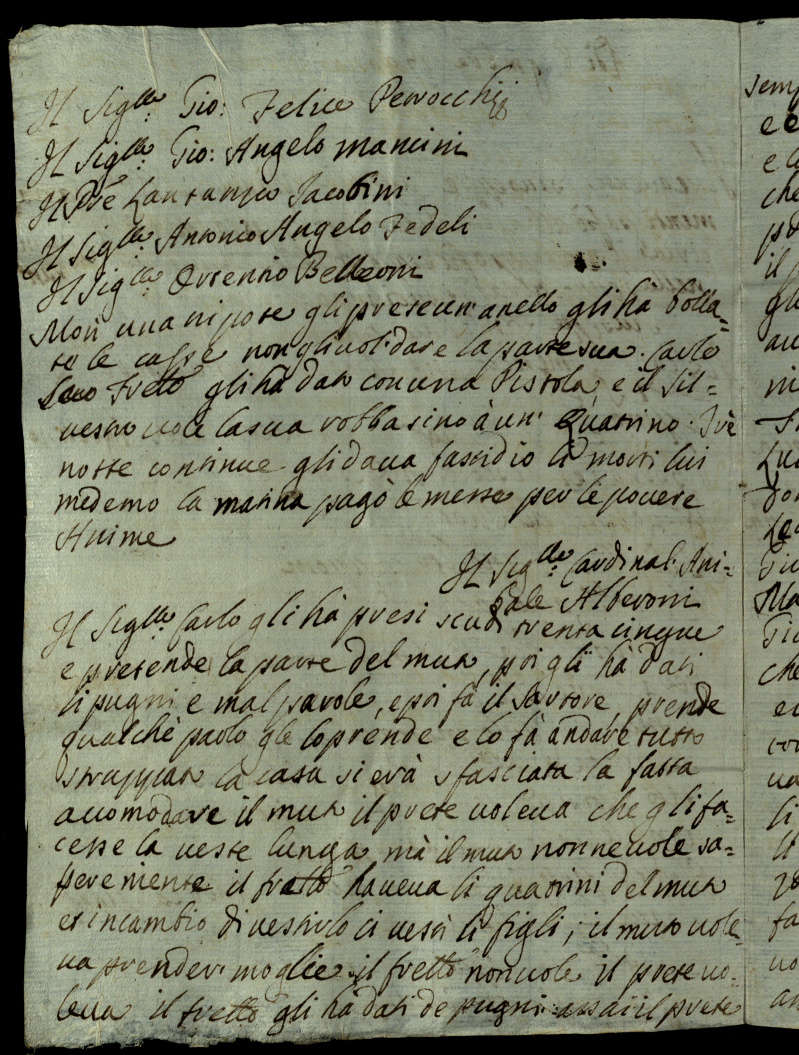 Il Sig.lle Gio: Felice Perrocchij
Il Sig.lle Gio: Angelo mancini
Il Pre Lantanzio Jacobini
Il Sig.lle Antonio Angelo Fedeli
Il Sig.lle Orrentio Belleoni
Mori una nipote gli prese un' anello gli hà bolla=
te le casse non gli uol dare la parte sua. Carlo
suo Frello gli hà dato con una Pistola e il Sil=
uestro uole la sua robba sino à un' Quatrino. Trè
notte continue gli daua fastidio li morti lui
medemo la matina pagò le messe per le pouere
Anime
Il Sig.lle Cardinal Ani=
bale Alberoni
Il Sig.lle Carlo gli hà presi scudi trenta cinque
e pretende la parte del muto, poi gli hà dati
li pugni e mal parole, e poi fà il Sartore prende
qualche paolo gle lo prende e lo fà andare tutto
strappato la casa si erà sfasciata la fatta
accomodare il muto il prete uoleua che gli fa=
cesse la ueste lunga mà il muto non ne uole sa=
pere niente il fratto haueua li quatrini del muto
et in cambio di uestirlo ci uestì li figli; il muto uole=
ua prender moglie il fretto non uole il prete uo=
leua il fretto gli hà dati de pugni assai il prete
semp
e
e
che
il
che